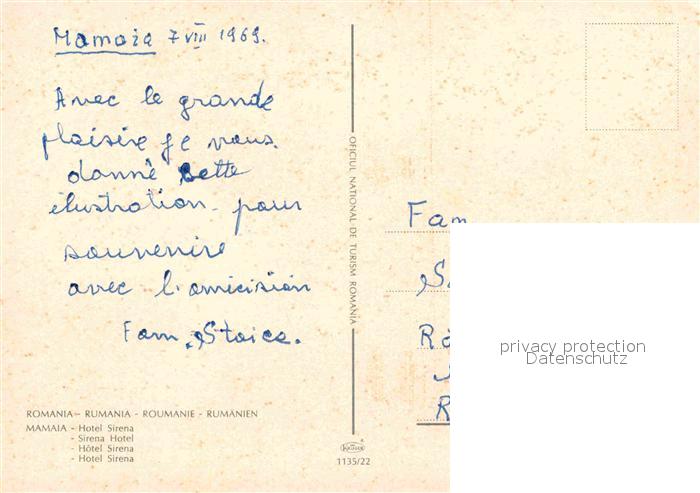 Mamaia 7 VIII 1969.
Avec le grande
plaisire je vous
donné cette
ilustration pour
souvenire
avec l'amicision
Fam. Stoica.
ROMANIA – RUMANIA - ROUMANIE - RUMÄNIEN
MAMAIA - Hotel Sirena
- Sirena Hotel
- Hôtel Sirena
- Hotel Sirena
OFICIUL NATIONAL DE TURISM ROMANIA
1135/22
Fam
privacy protection
Datenschutz